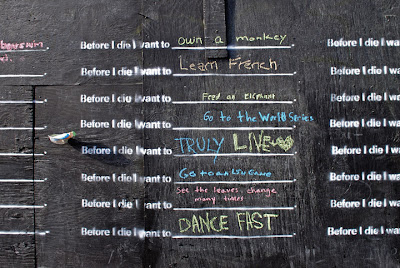 swim Before I die I want to own a monkey Before I die I want
Before I die I want to Learn French Before I die I want
Before I die I want to Feed an Elephant Before I die I want
Before I die I want to Go to the World Series Before I die I want
Before I die I want to TRULY LIVE Before I die I want
Before I die I want to Go to an LSU Game Before I die I want
Before I die I want to See the leaves change Before I die I want
many times
Before I die I want to DANCE FAST Before I die I want